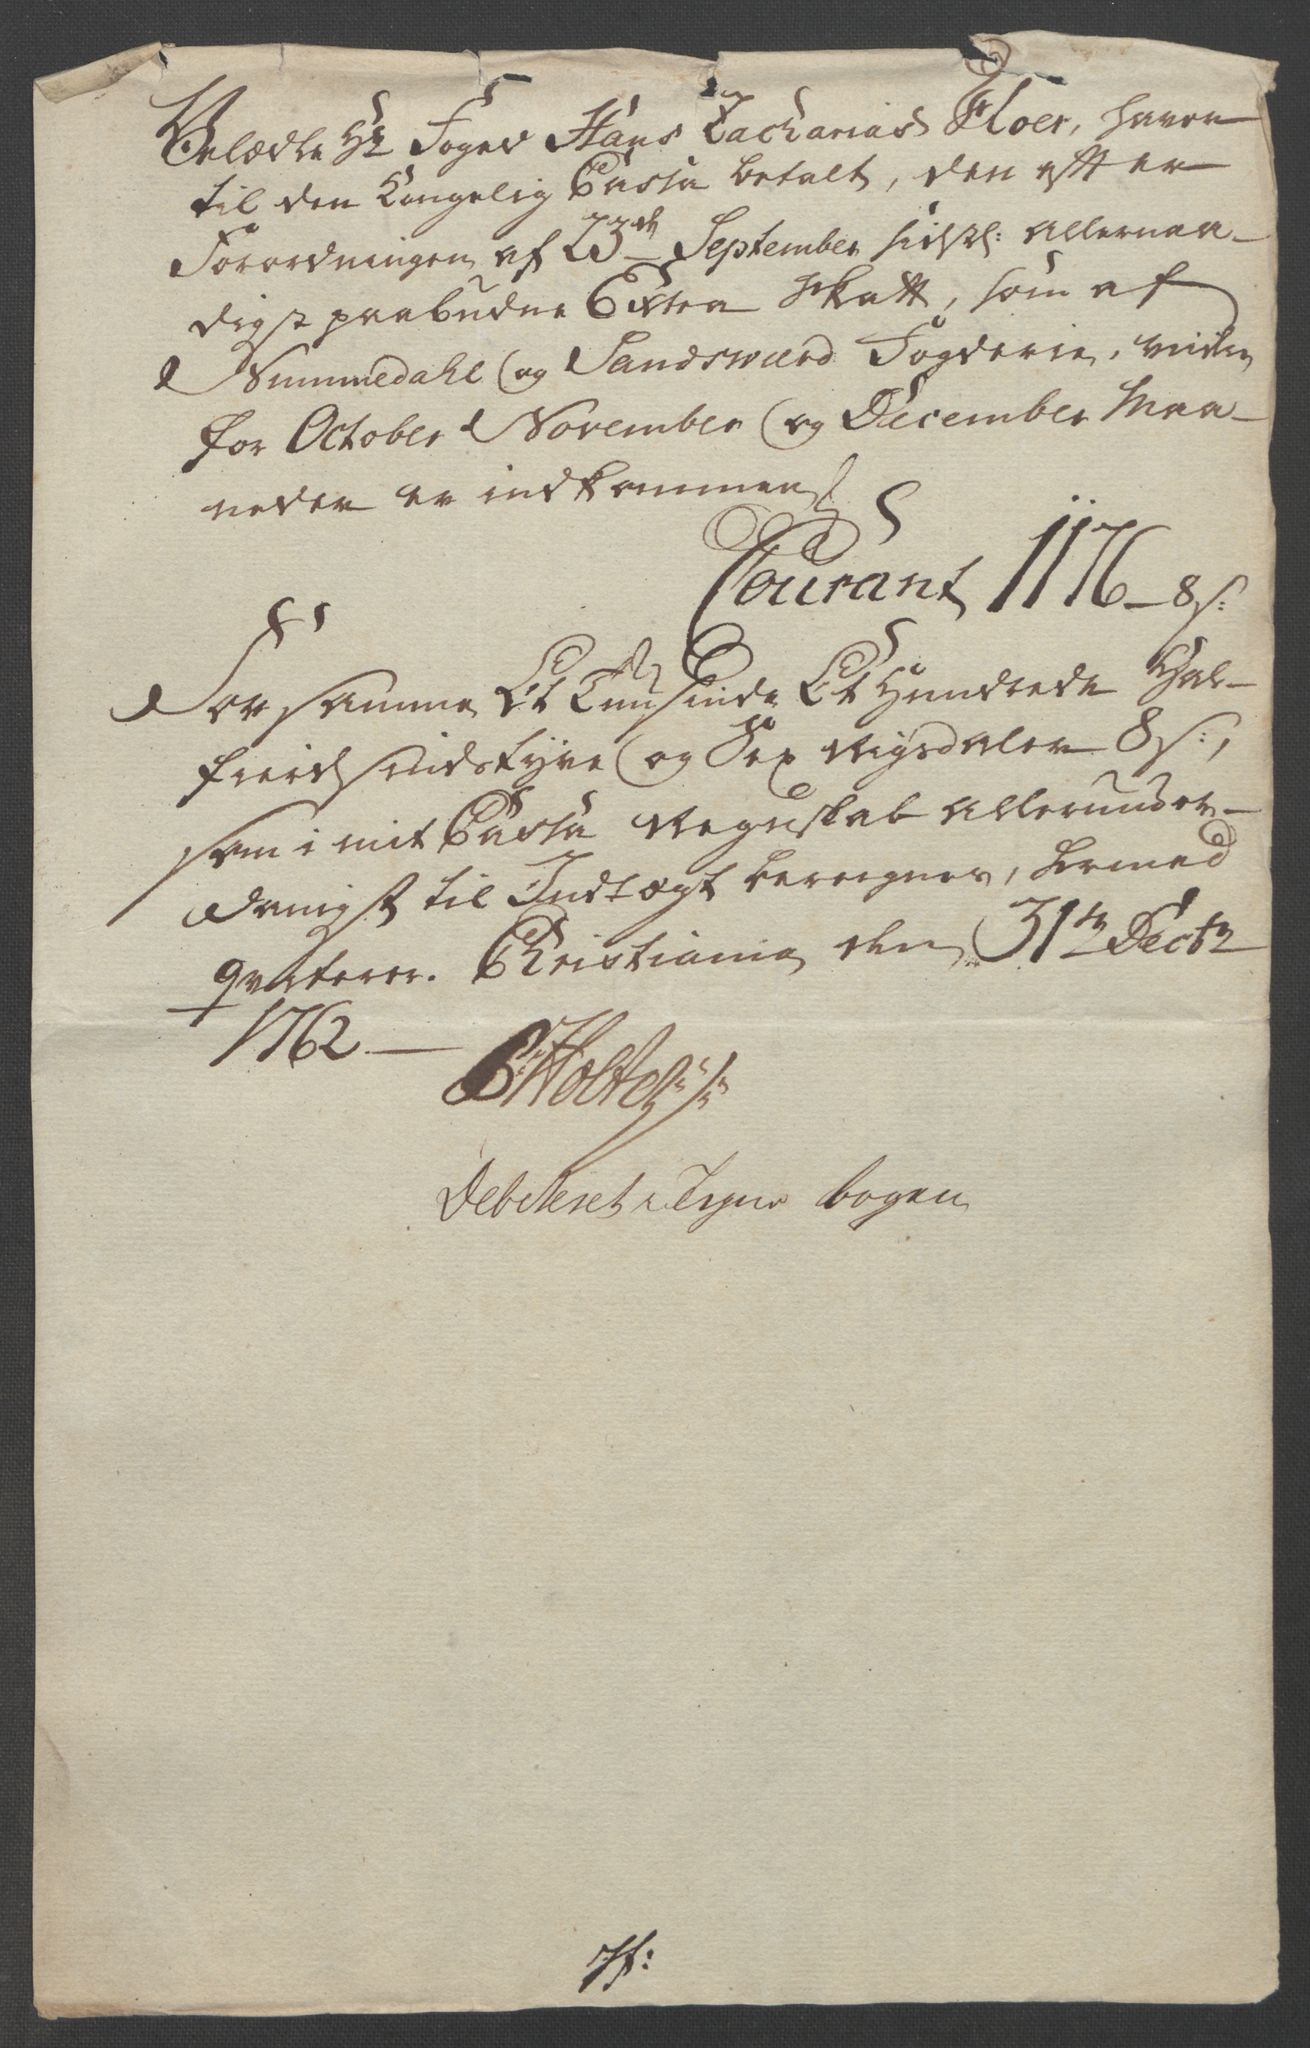 Velædle Hr Foged Hans Zacharias Floer, haver
til den Kongelig Cassa betalt, den efter
Forordningen af 23de September sidstl: allernaa-
digst paabudne Extra Skatt, som af
Nummedahl og Sandsværd Fogderie,
for October November og December Maa-
neder er indkommen
Courant 1176 – 8 s:
For samme Et Tuusinde Et Hundrede Hal-
fierdsindstyve og Sex Rigsdaler 8 s:,
som i mit Cassa Regnskab allerunder-
danigst til Indtægt beregnes, hermed
qvitterer. Christiania den 31te Decbr
1762. —
PHolter
Debiteret i bogen